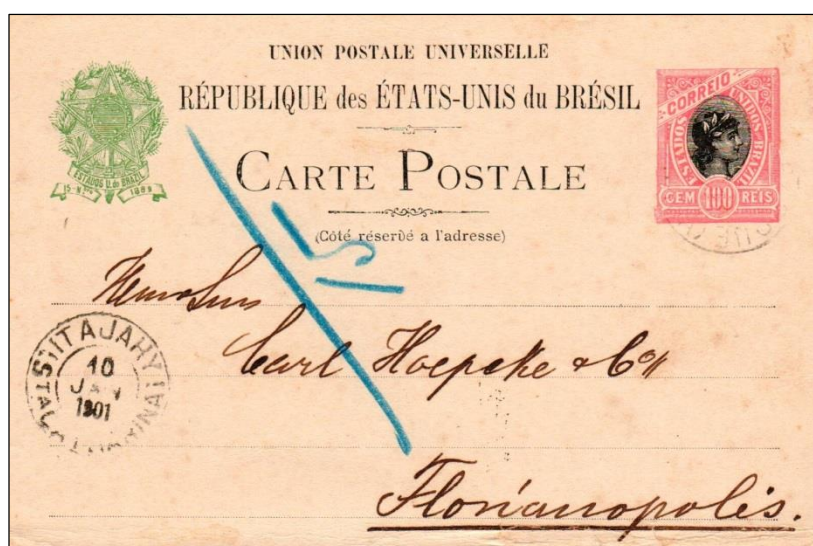 UNION POSTALE UNIVERSELLE
RÉPUBLIQUE des ÉTATS-UNIS du BRÉSIL
CARTE POSTALE
(Côté réservé a l'adresse)
ESTADOS U. do BRAZIL
1889
CORREIO
ESTADOS UNIDOS BRAZIL
CEM 100 REIS
15
Carl Hoepcke & Co
Florianopolis.
ITAJAHY
10
JAN
1901